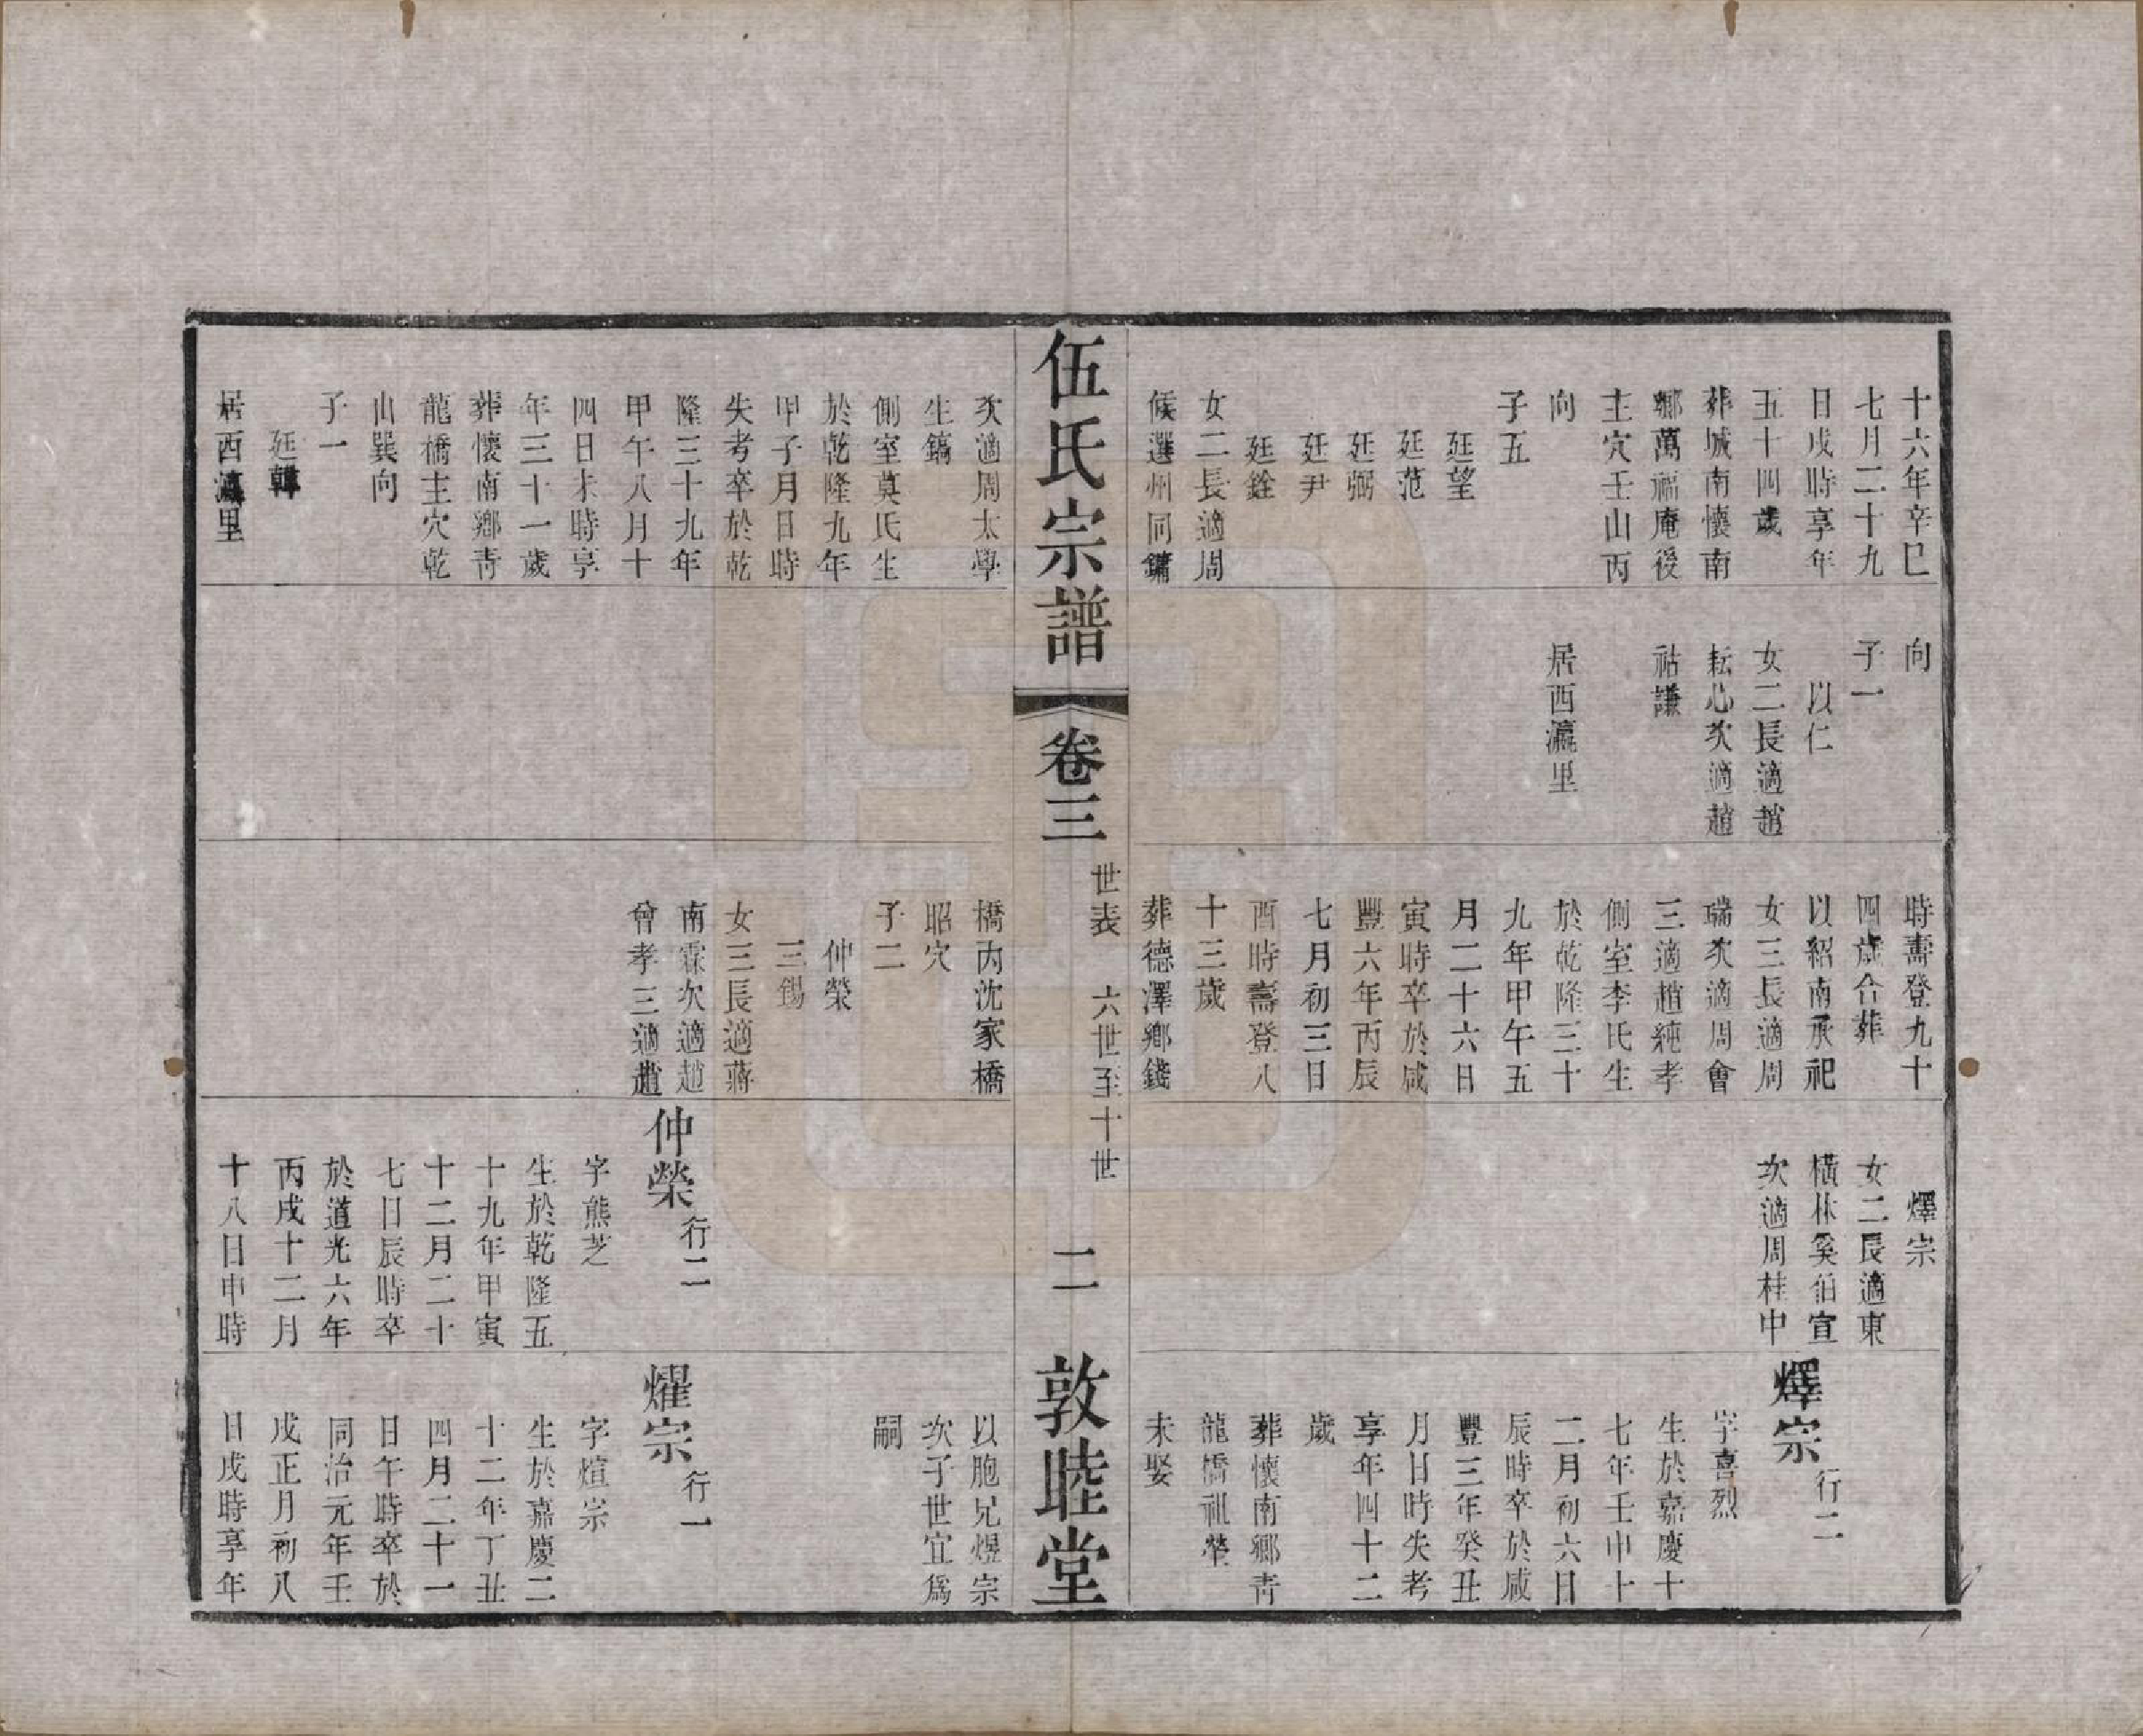 十六年辛巳
七月二十九
日戌時享年
五十四歲
葬城南懷南
鄉萬福庵後
主穴壬山丙
向
子五
廷望
廷范
廷弼
廷尹
廷銓
女二長適周
候選州同鏞
向
子一
以仁
女二長適趙
耘心次適趙
祜謙
居西瀛里
時壽登九十
四歲合葬
以紹南承祀
女三長適周
瑞次適周會
三適趙純孝
側室李氏生
於乾隆三十
九年甲午五
月二十六日
寅時卒於咸
豐六年丙辰
七月初三日
酉時壽登八
十三歲
葬德澤鄉錢
燡宗
女二長適東
橫林奚伯宣
次適周桂中
燡宗 行二
字喜烈
生於嘉慶十
七年壬申十
二月初六日
辰時卒於咸
豐三年癸丑
月日時失考
享年四十二
歲
葬懷南鄉青
龍橋祖塋
未娶
伍氏宗譜
卷三
世表 六世至十世
二
敦睦堂
次適周太學
生鎬
側室莫氏生
於乾隆九年
甲子月日時
失考卒於乾
隆三十九年
甲午八月十
四日未時享
年三十一歲
葬懷南鄉青
龍橋主穴乾
山巽向
子一
廷韡
居西瀛里
橋內沈家橋
昭穴
子二
仲榮
三錫
女三長適蔣
南霖次適趙
曾孝三適趙
仲榮 行二
字熊芝
生於乾隆五
十九年甲寅
十二月二十
七日辰時卒
於道光六年
丙戌十二月
十八日申時
以胞兄煜宗
次子世宜為
嗣
燿宗 行一
字煊宗
生於嘉慶二
十二年丁丑
四月二十一
日午時卒於
同治元年壬
戌正月初八
日戌時享年